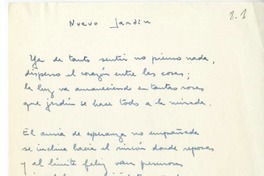 Nuevo Jardín
Ya de tanto sentir no pienso nada,
disperso el corazón entre las cosas;
la luz va amaneciendo en tantas rosas
que jardín se hace todo a la mirada.
El ansia de esperanza no empañada
se inclina hacia el rincón donde reposas
y al límite feliz van